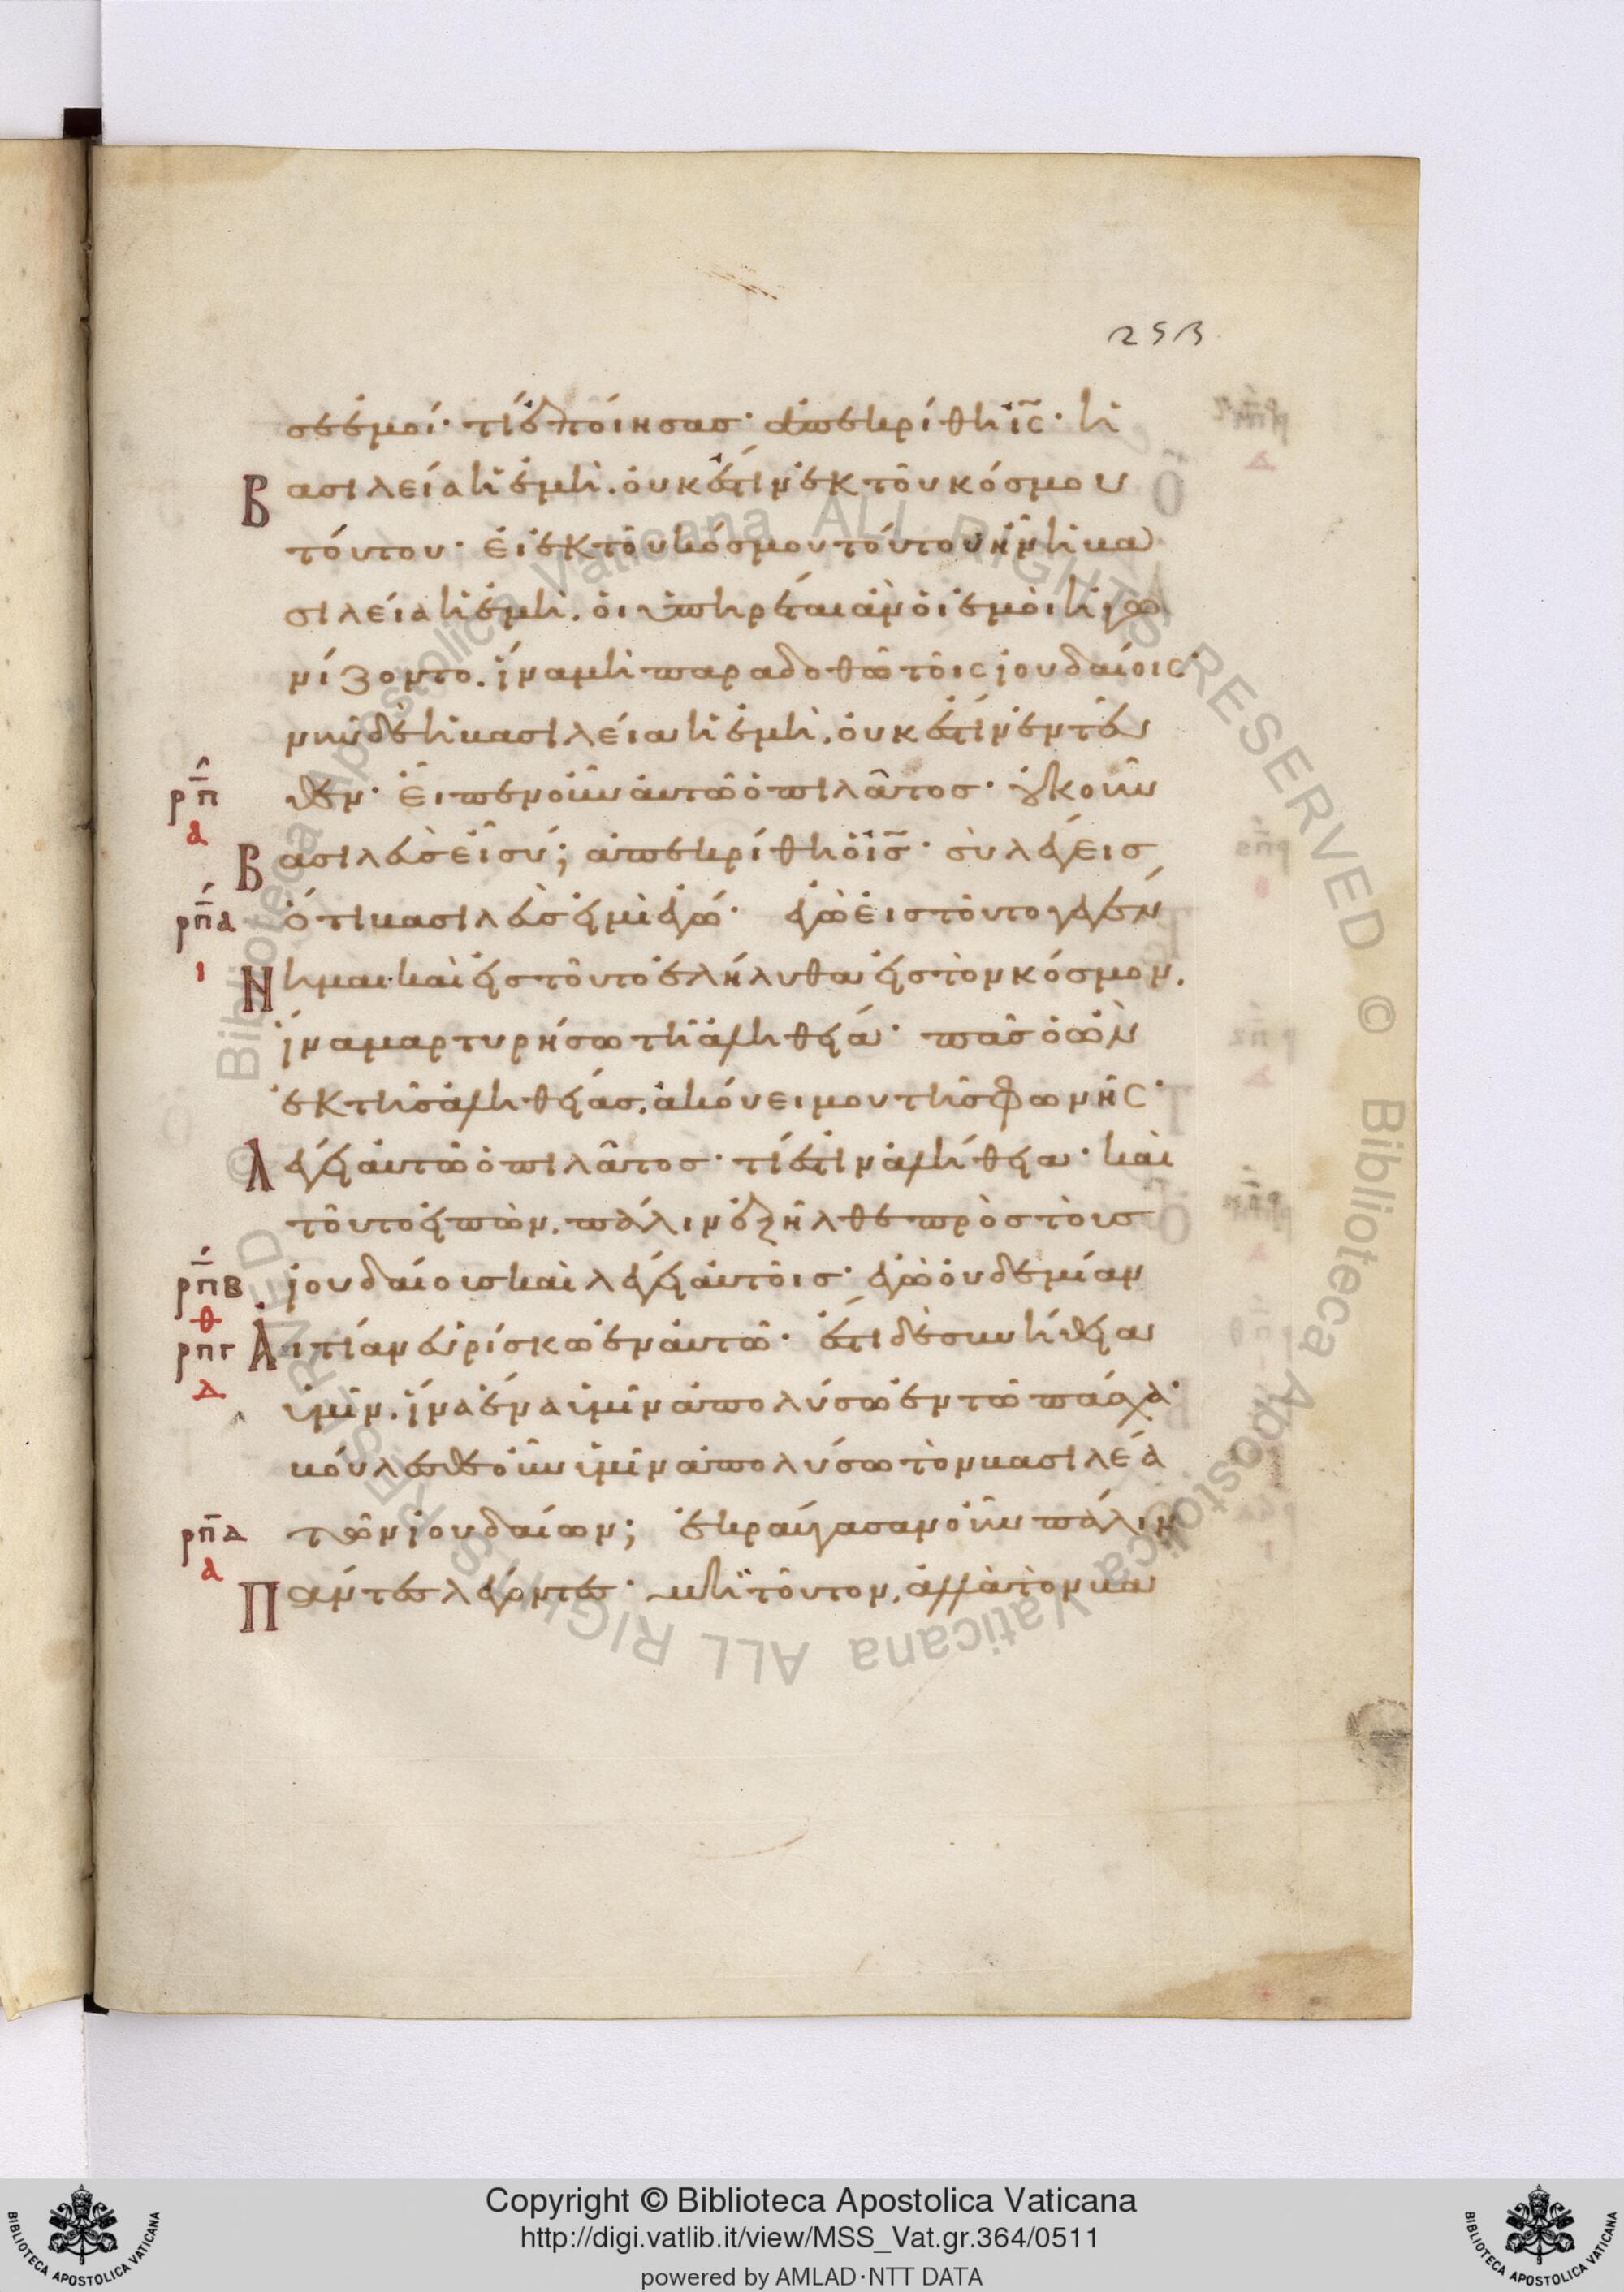 253
σε ἐμοί· τί ἐποίησας· ἀπεκρίθη ἰ̅ς̅· ἡ
βασιλεία ἡ ἐμὴ. οὐκ ἔστιν ἐκ τοῦ κόσμου
τούτου· εἰ ἐκ τοῦ κόσμου τούτου ἦν ἡ βα
σιλεία ἡ ἐμὴ. οἱ ὑπηρέται ἀν οἱ ἐμοὶ ἠγω
νίζοντο. ἵνα μὴ παραδοθῶ τοῖς ἰουδαίοις·
νῦν δὲ ἡ βασιλεία ἡ ἐμὴ. οὐκ ἔστιν ἐντεῦ
ρ̅π̅ θεν· εἶπεν οὖν αὐτῶ ὁ πιλᾶτος· οὐκοῦν
α
βασιλεὺς εἶ σύ; ἀπεκρίθη ὁ ἰ̅ς̅· σὺ λέγεις
ρ̅π̅α ὅτι βασιλεὺς εἰμὶ ἐγώ· ἐγὼ εἰς τοῦτο γεγέν
ι
νημαι· καὶ εἰς τοῦτο ἐλήλυθα εἰς τὸν κόσμον.
ἵνα μαρτυρήσω τῆ ἀληθεία· πᾶς ὁ ὢν
ἐκ τῆς ἀληθείας. ἀκούει μου τῆς φωνῆς·
λέγει αὐτῶ ὁ πιλᾶτος· τί ἐστιν ἀλήθεια· καὶ
τοῦτο εἰπὼν. πάλιν ἐξῆλθε πρὸς τοὺς
ρ̅π̅β ἰουδαίους καὶ λέγει αὐτοῖς· ἐγὼ οὐδεμίαν
θ
ρπγ αἰτίαν εὑρίσκω ἐν αὐτῶ· ἔστι δὲ συνήθεια
δ
ὑμῖν. ἵνα ἕνα ὑμῖν ἀπολύσω ἐν τῶ πάσχα·
βούλεσθε οὖν ὑμῖν ἀπολύσω τὸν βασιλέα
ρ̅π̅δ τῶν ἰουδαίων; ἐκραύγασαν οὖν πάλιν
α
πάντες λέγοντες· μὴ τοῦτον. ἀλλὰ τὸν βα
Copyright © Biblioteca Apostolica Vaticana
http://digi.vatlib.it/view/MSS_Vat.gr.364/0511
powered by AMLAD·NTT DATA
BIBLIOTECA APOSTOLICA VATICANA
BIBLIOTECA APOSTOLICA VATICANA
© Biblioteca Apostolica Vaticana ALL RIGHTS RESERVED © Biblioteca Apostolica Vaticana ALL RIGHTS RESERVED